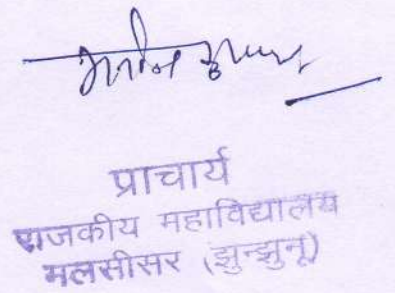 प्राचार्य
राजकीय महाविद्यालय
मलसीसर (झुन्झुनू)